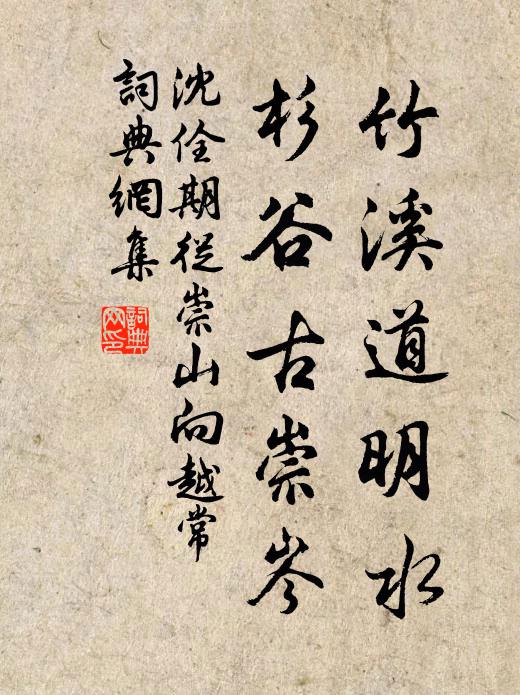 竹溪道明水
杉谷古崇岑
沈佺期從崇山向越常
詞典網集
詞典網印